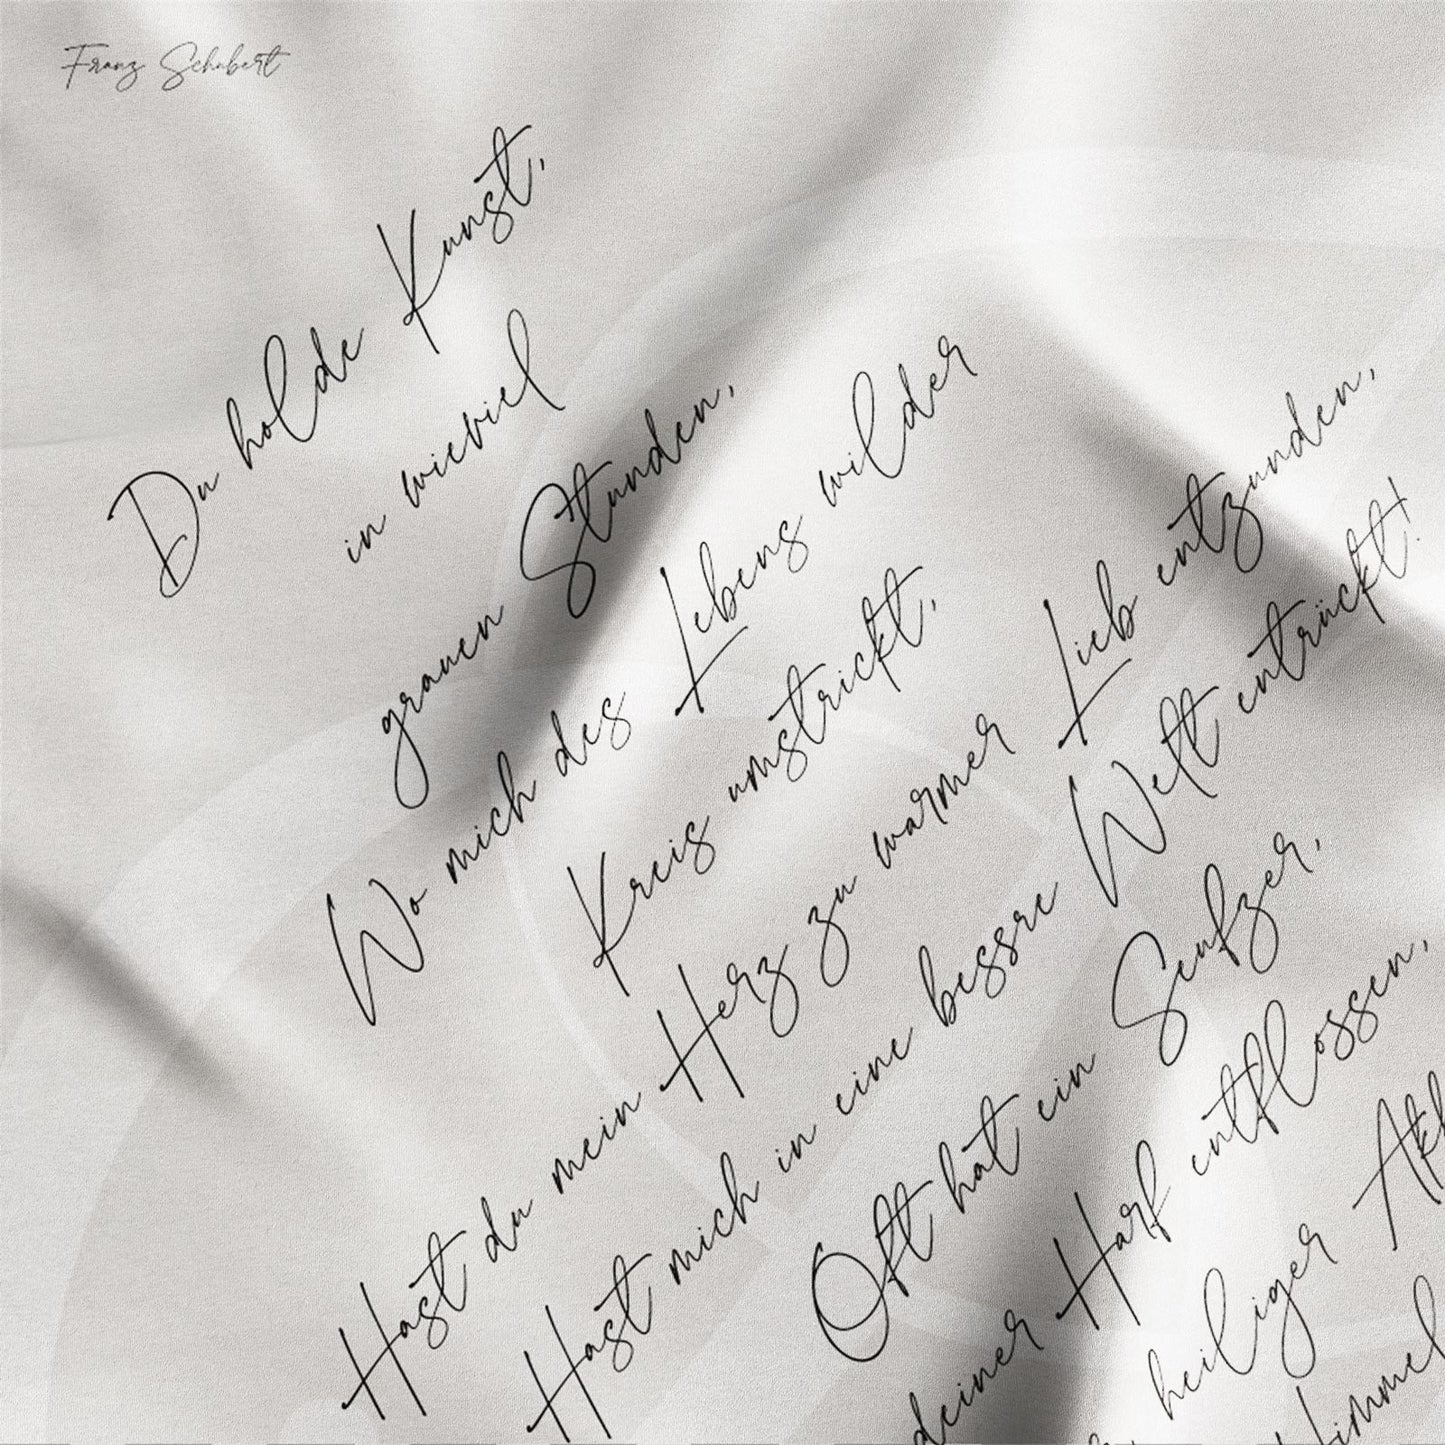 Franz Schubert
Du holde Kunst,
in wieviel
grauen Stunden,
Wo mich des Lebens wilder
Kreis umstrickt,
Hast du mein Herz zu warmer Lieb entzunden,
Hast mich in eine bessre Welt entrückt!
Oft hat ein Seufzer,
deiner Harf entflossen,
heiliger Ak
Himmel